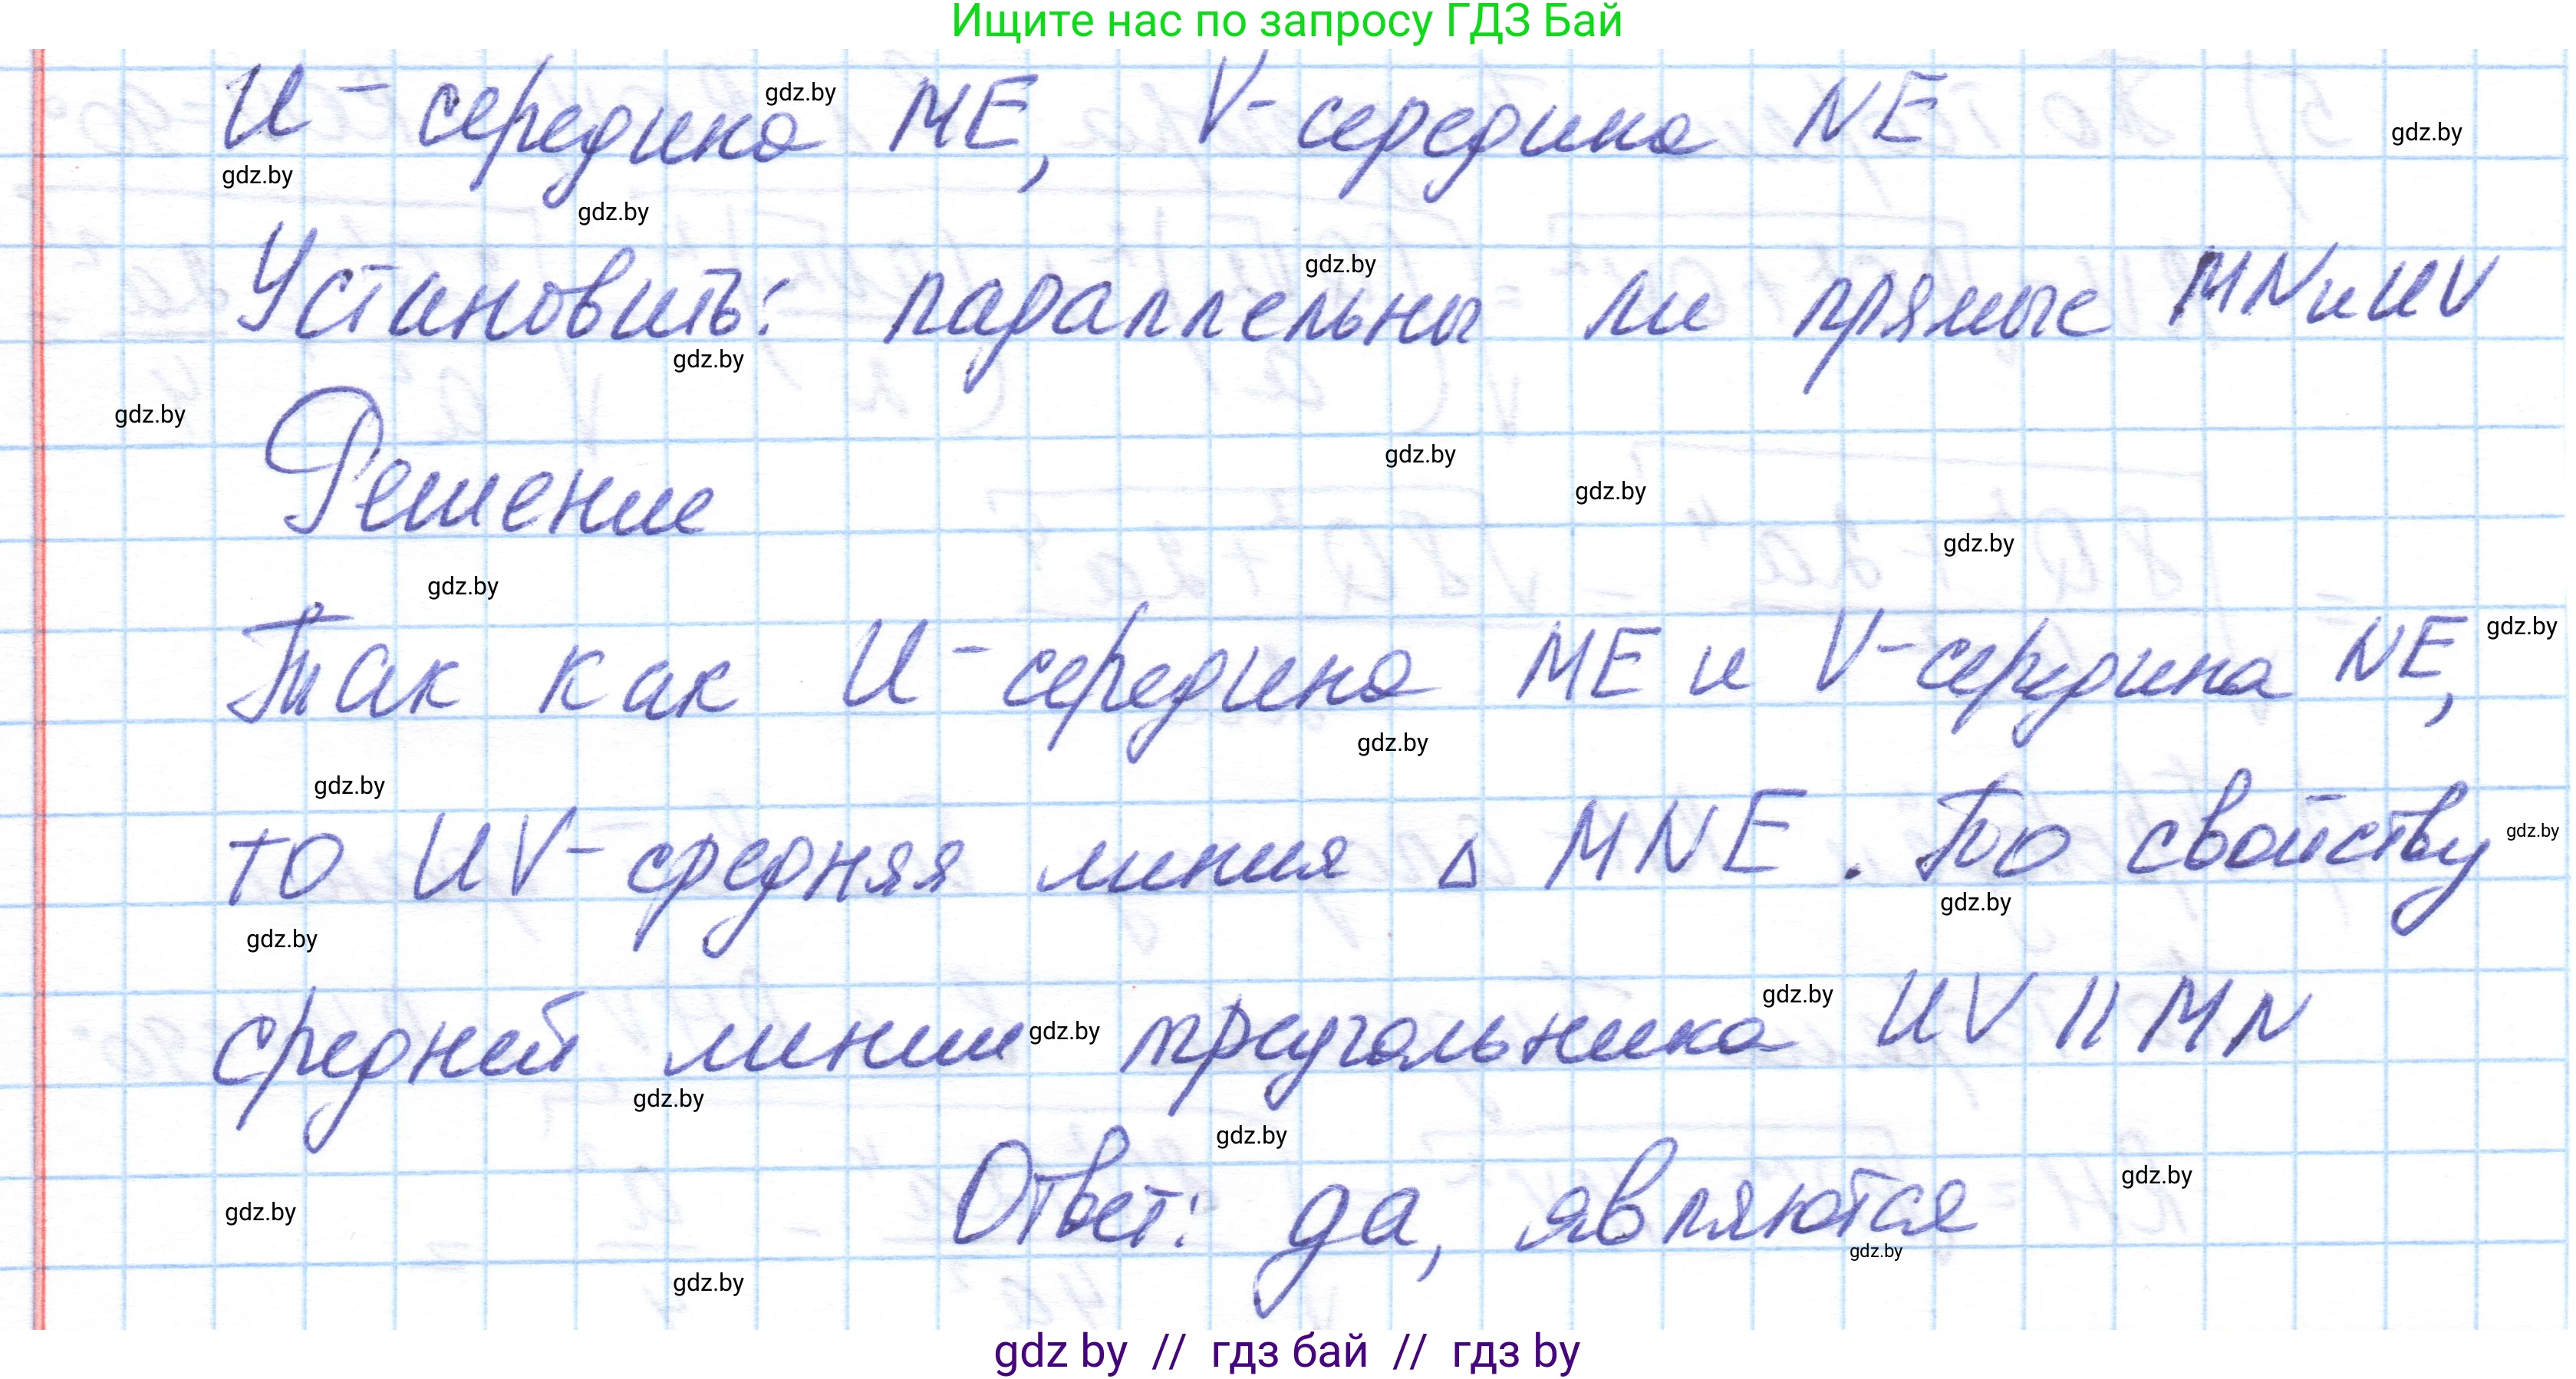 Ищите нас по запросу ГДЗ Бай
U - середина ME, V - середина NE
gdz.by
gdz.by
gdz.by
gdz.by
Установить: параллельны ли прямые MN и UV
gdz.by
gdz.by
gdz.by
Решение
gdz.by
gdz.by
gdz.by
gdz.by
Так как U - середина ME и V - середина NE,
gdz.by
gdz.by
gdz.by
то UV - средняя линия △ MNE. По свойству
gdz.by
gdz.by
gdz.by
средней линии треугольника UV || MN
gdz.by
gdz.by
gdz.by
gdz.by
Ответ: да, являются
gdz.by
gdz.by
gdz.by
gdz.by
gdz by // гдз бай // гдз by